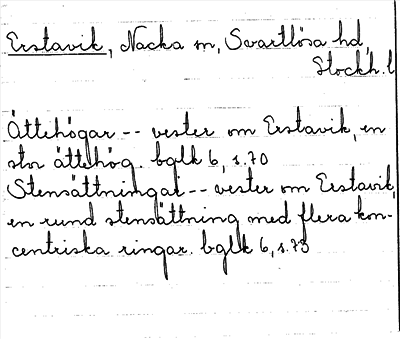 Erstavik, Nacka sn, Svartlösa hd,
Stockh. l
Ättehögar -- vester om Erstavik, en
stor ättehög. bglk 6, s. 70
Stensättningar -- vester om Erstavik,
en rund stensättning med flera kon-
centriska ringar. bglk 6, s. 73